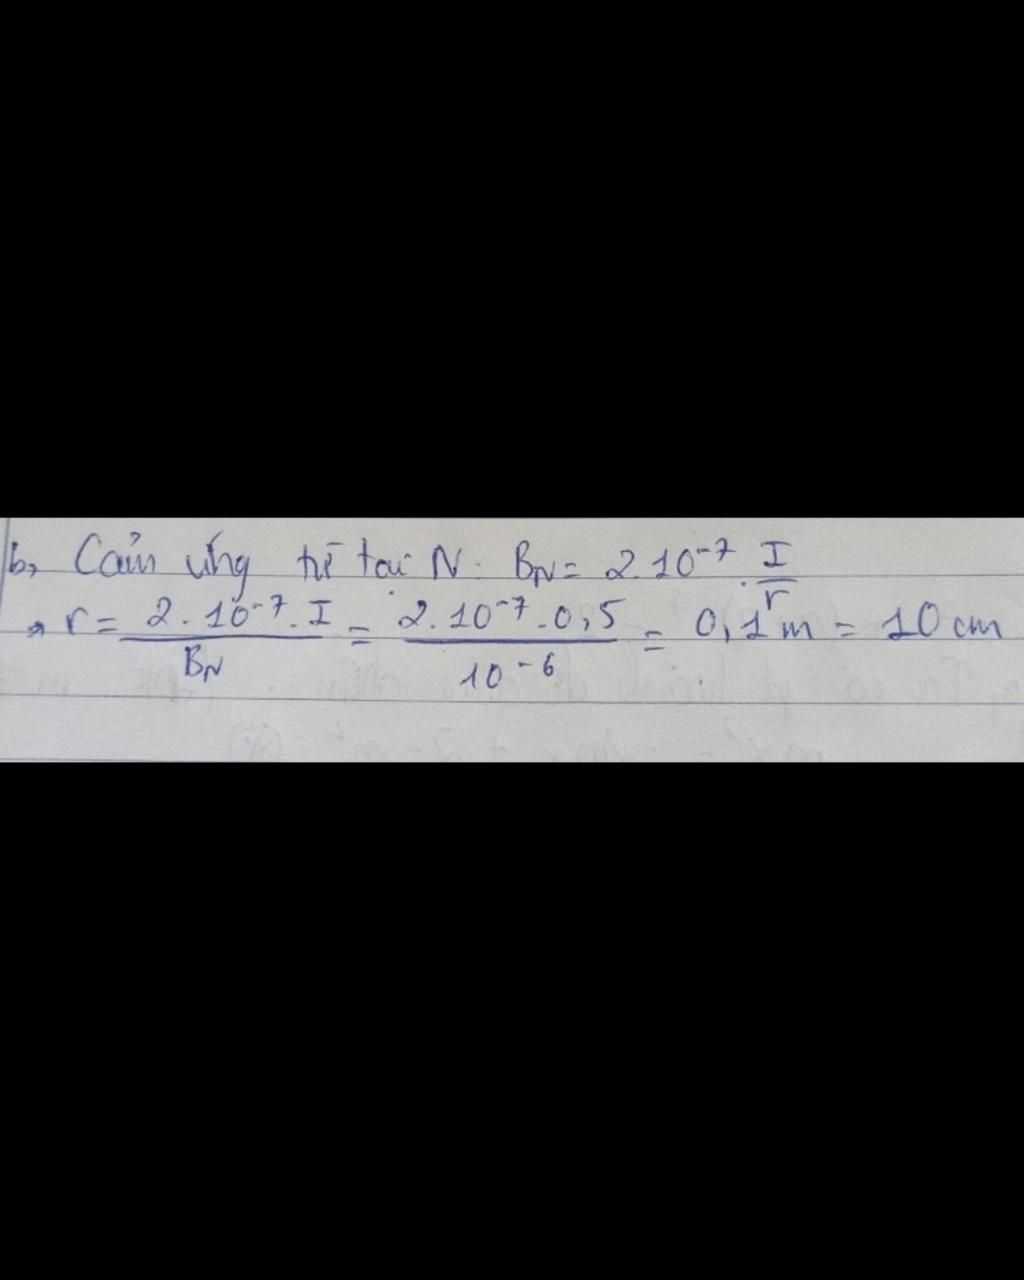 b, Cảm ứng từ tại N: B_N = 2.10⁻⁷.I/r
→ r = 2.10⁻⁷.I/B_N = 2.10⁻⁷.0,5/10⁻⁶ = 0,1m = 10 cm